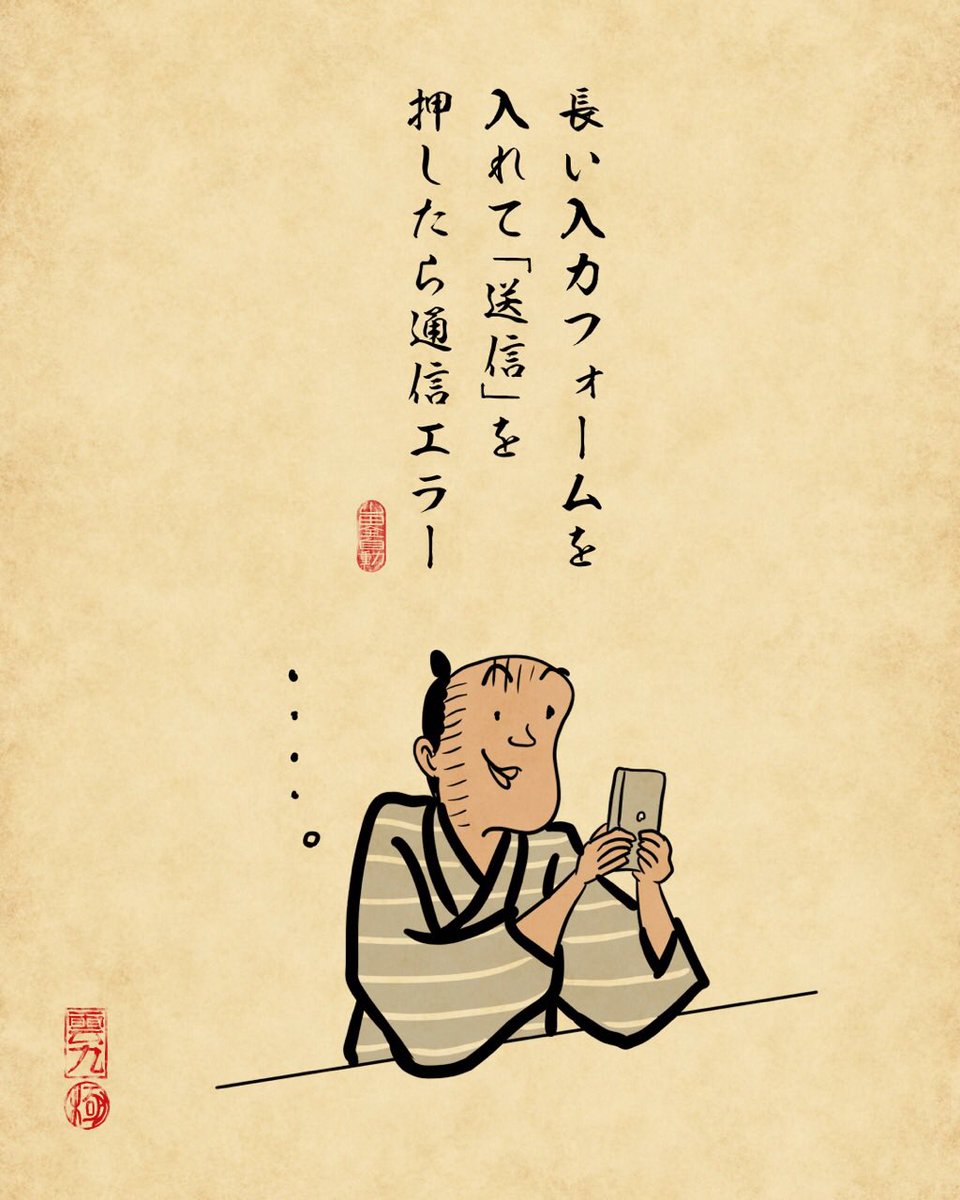 長い入力フォームを
入れて「送信」を
押したら通信エラー